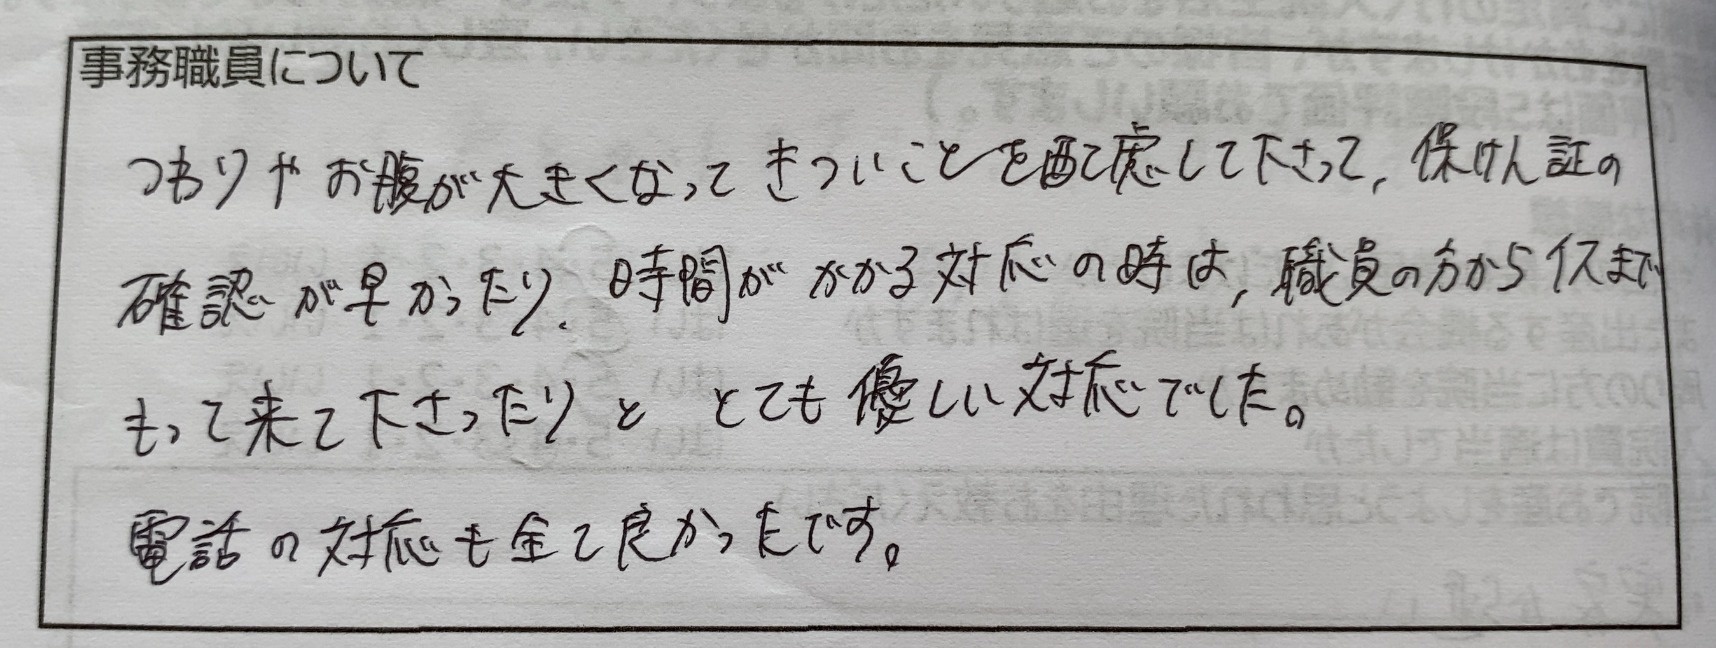 事務職員について
つわりやお腹が大きくなってきついことを配慮して下さって、保けん証の
確認が早かったり、時間がかかる対応の時は、職員の方からイスまで
もって来て下さったりととても優しい対応でした。
電話の対応も全て良かったです。